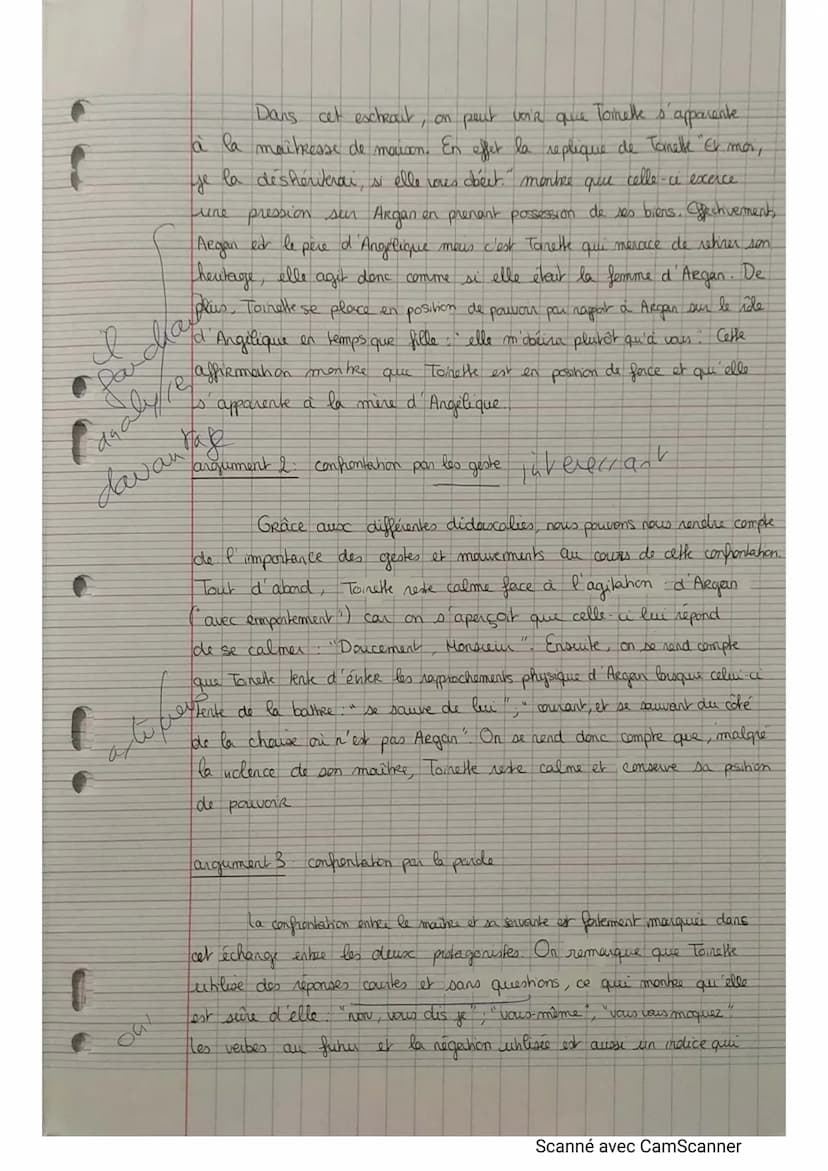 Dans cet eschrait, on peut voir que Toinette s'apparente
à la maîtresse de maison. En effet la replique de Toinette "Et moi,
je la déshériterai, si elle vous obéit." montre que celle-ci exerce
une pression sur Argan en prenant possession de ses biens. Effectivement,
Argan est le père d'Angélique mais c'est Toinette qui menace de retirer son
heritage, elle agit donc comme si elle était la femme d'Argan. De
plus, Toinette se place en position de pouvoir par rapport à Argan sur le rôle
d'Angélique en temps que fille : "elle m'obéira plutôt qu'à vous". Cette
affirmation montre que Toinette est en position de force et qu'elle
s'apparente à la mère d'Angélique.
il
faudrait
analyser
davantage
argument 2: confrontation par les geste intéressant
Grâce aux différentes didascalies, nous pouvons nous rendre compte
de l'importance des gestes et mouvements au cours de cette confrontation.
Tout d'abord, Toinette reste calme face à l'agitation d'Argan
("avec emportement") car on s'aperçoit que celle-ci lui répond
de se calmer : "Doucement, Monsieur". Ensuite, on se rend compte
que Toinette tente d'éviter les rapprochements physique d'Argan lorsque celui-ci
tente de la battre : "se sauve de lui", "courant, et se sauvant du côté
de la chaise où n'est pas Argan". On se rend donc compte que, malgré
la violence de son maître, Toinette reste calme et conserve sa position
de pouvoir
argument 3 confrontation par la parole
La confrontation entre le maître et sa servante est fortement marquée dans
cet échange entre les deux protagonistes. On remarque que Toinette
utilise des réponses courtes et sans questions, ce qui montre qu'elle
est sûre d'elle : "non, vous dis je", "vous-même", "vous vous moquez"
oui
les verbes au futur et la négation utilisée est aussi un indice qui
Scanné avec CamScanner